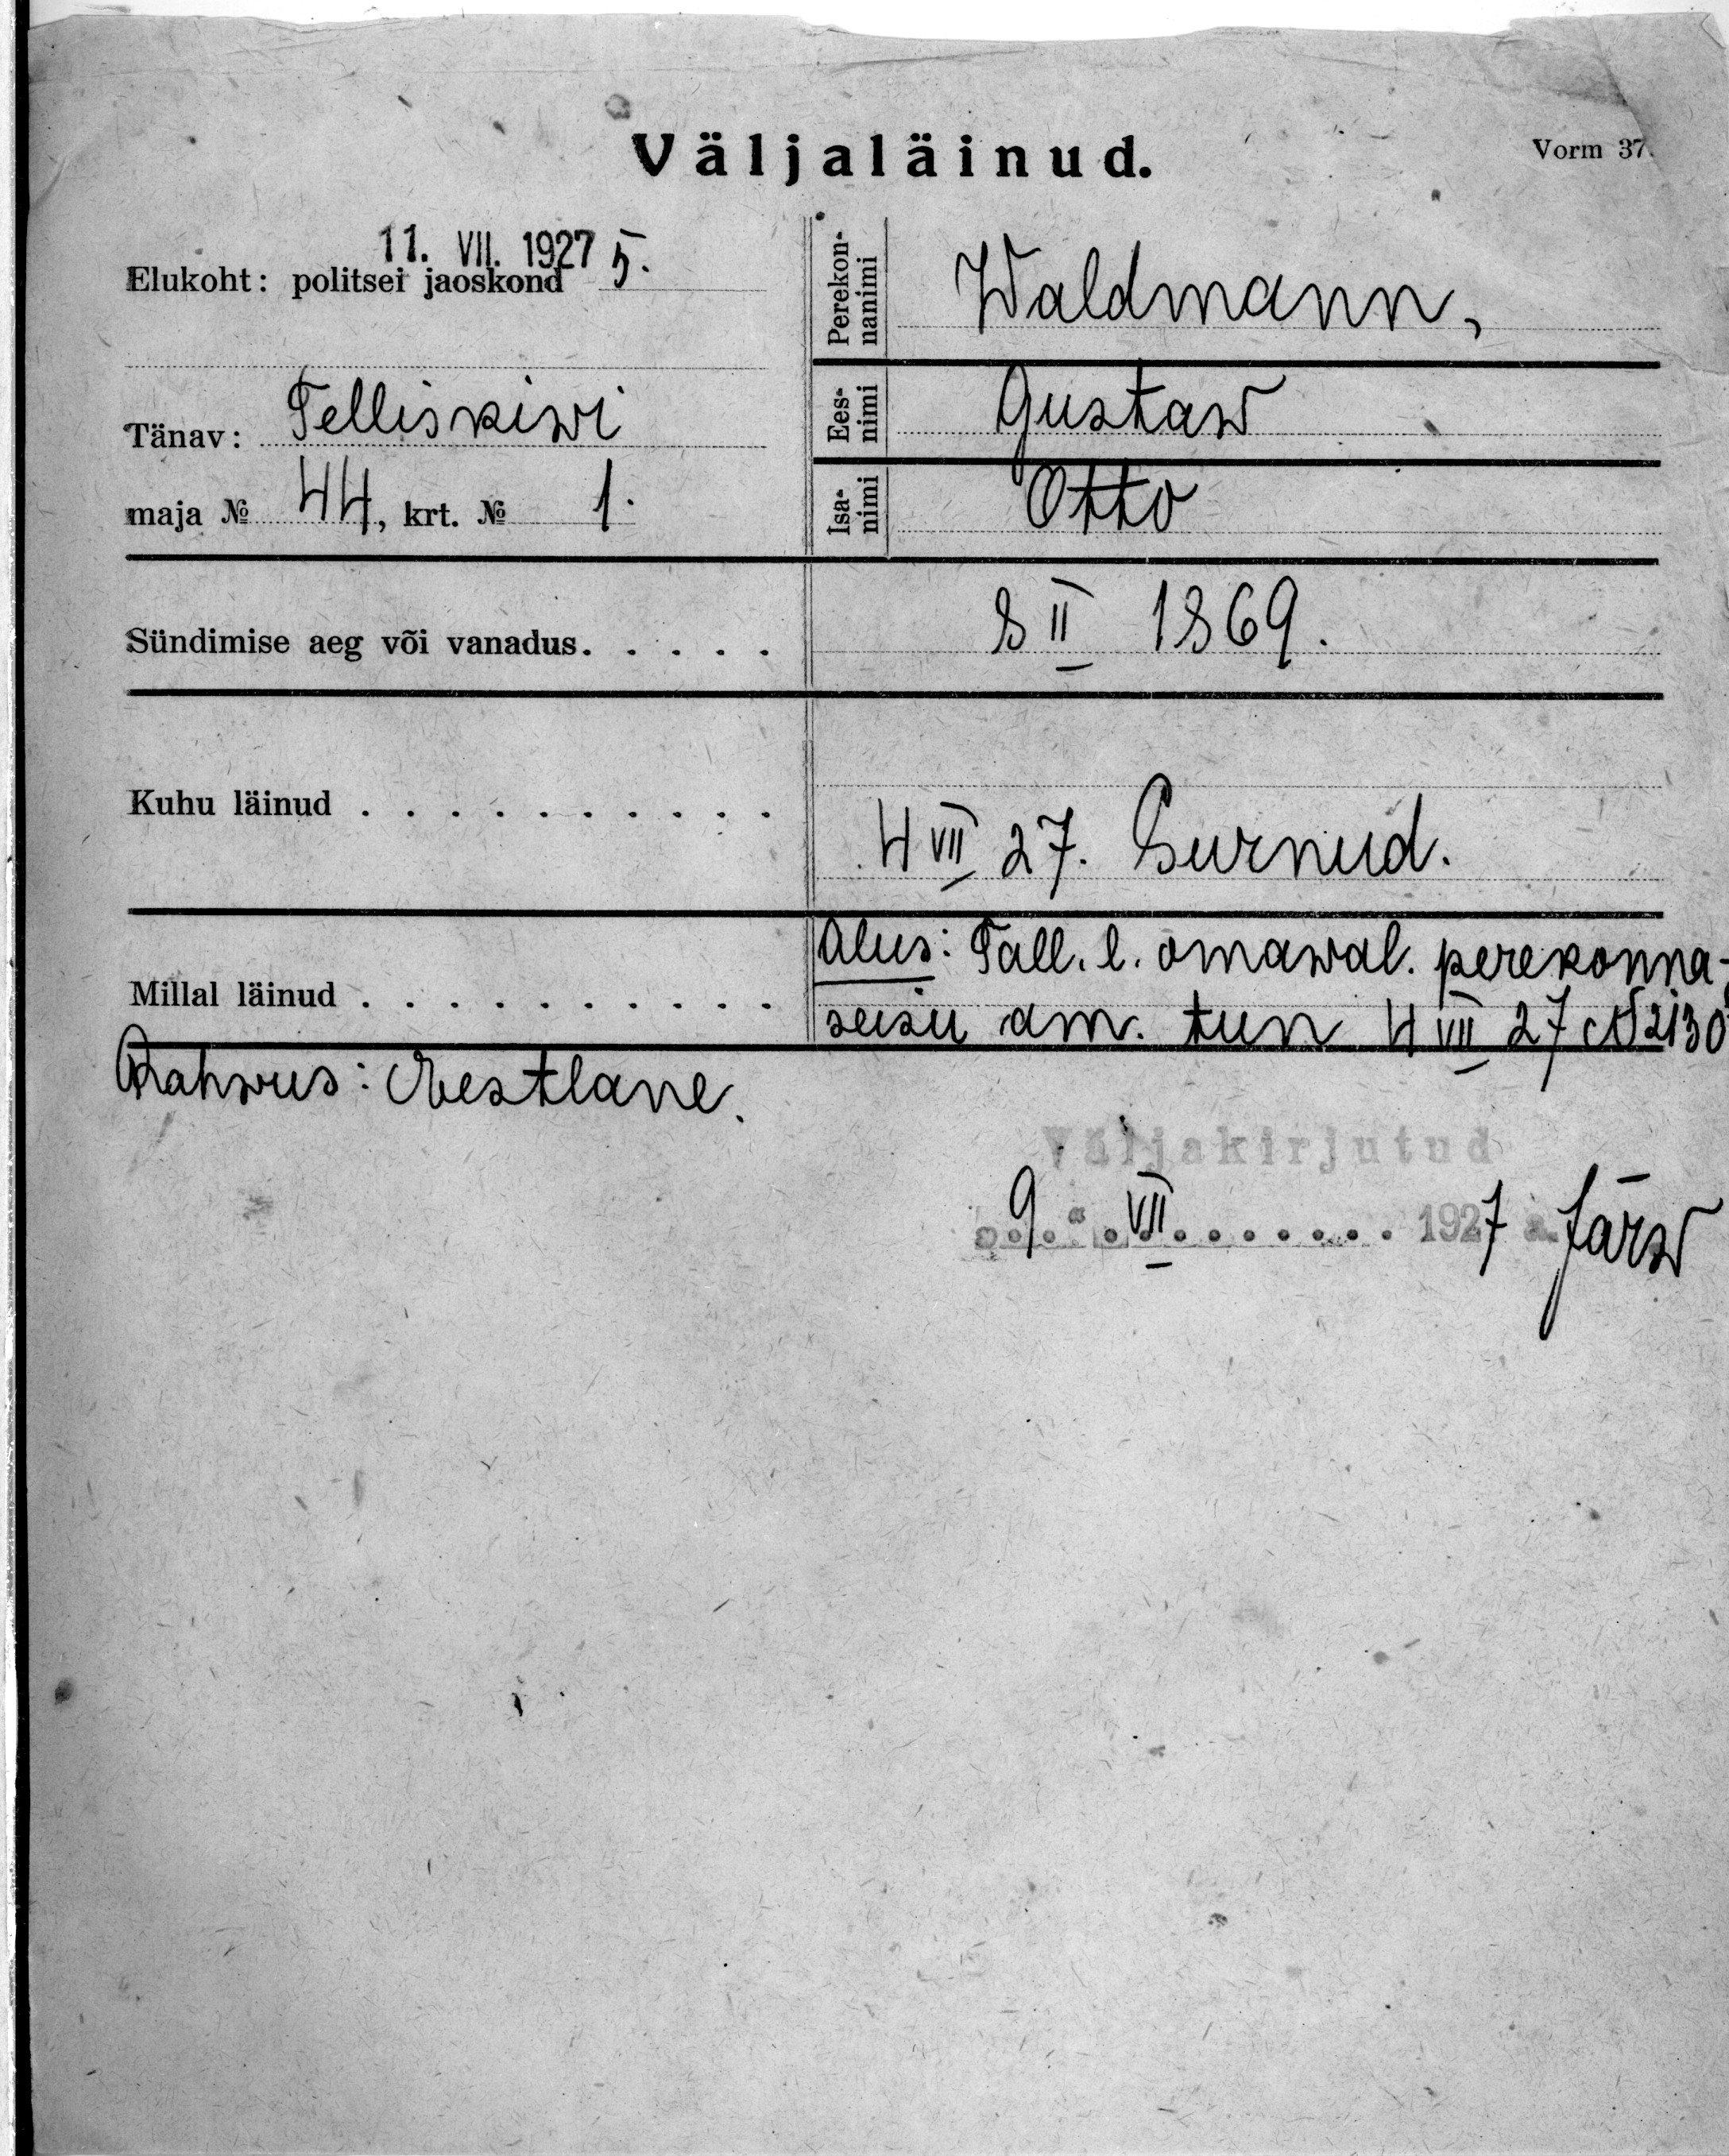 Väljaläinud.
Vorm 37.
11. VII. 1927
Elukoht: politsei jaoskond 5.
Tänav: Telliskiwi
maja № 44, krt. № 1.
Perekon-
nanimi
Waldmann,
Ees-
nimi
Gustaw
Isa-
nimi
Otto
Sündimise aeg või vanadus. . . . . 8 II 1869.
Kuhu läinud . . . . . . . . . . 4 VII 27. Surnud.
Millal läinud . . . . . . . . . .
Alus: Tall. l. omawal. perekonna-
seisu am. tun 4 VII 27 N 2130
Rahwus: Eestlane.
Väljakirjutud
„9.“ VII. . . . . . . 1927 a. Järw